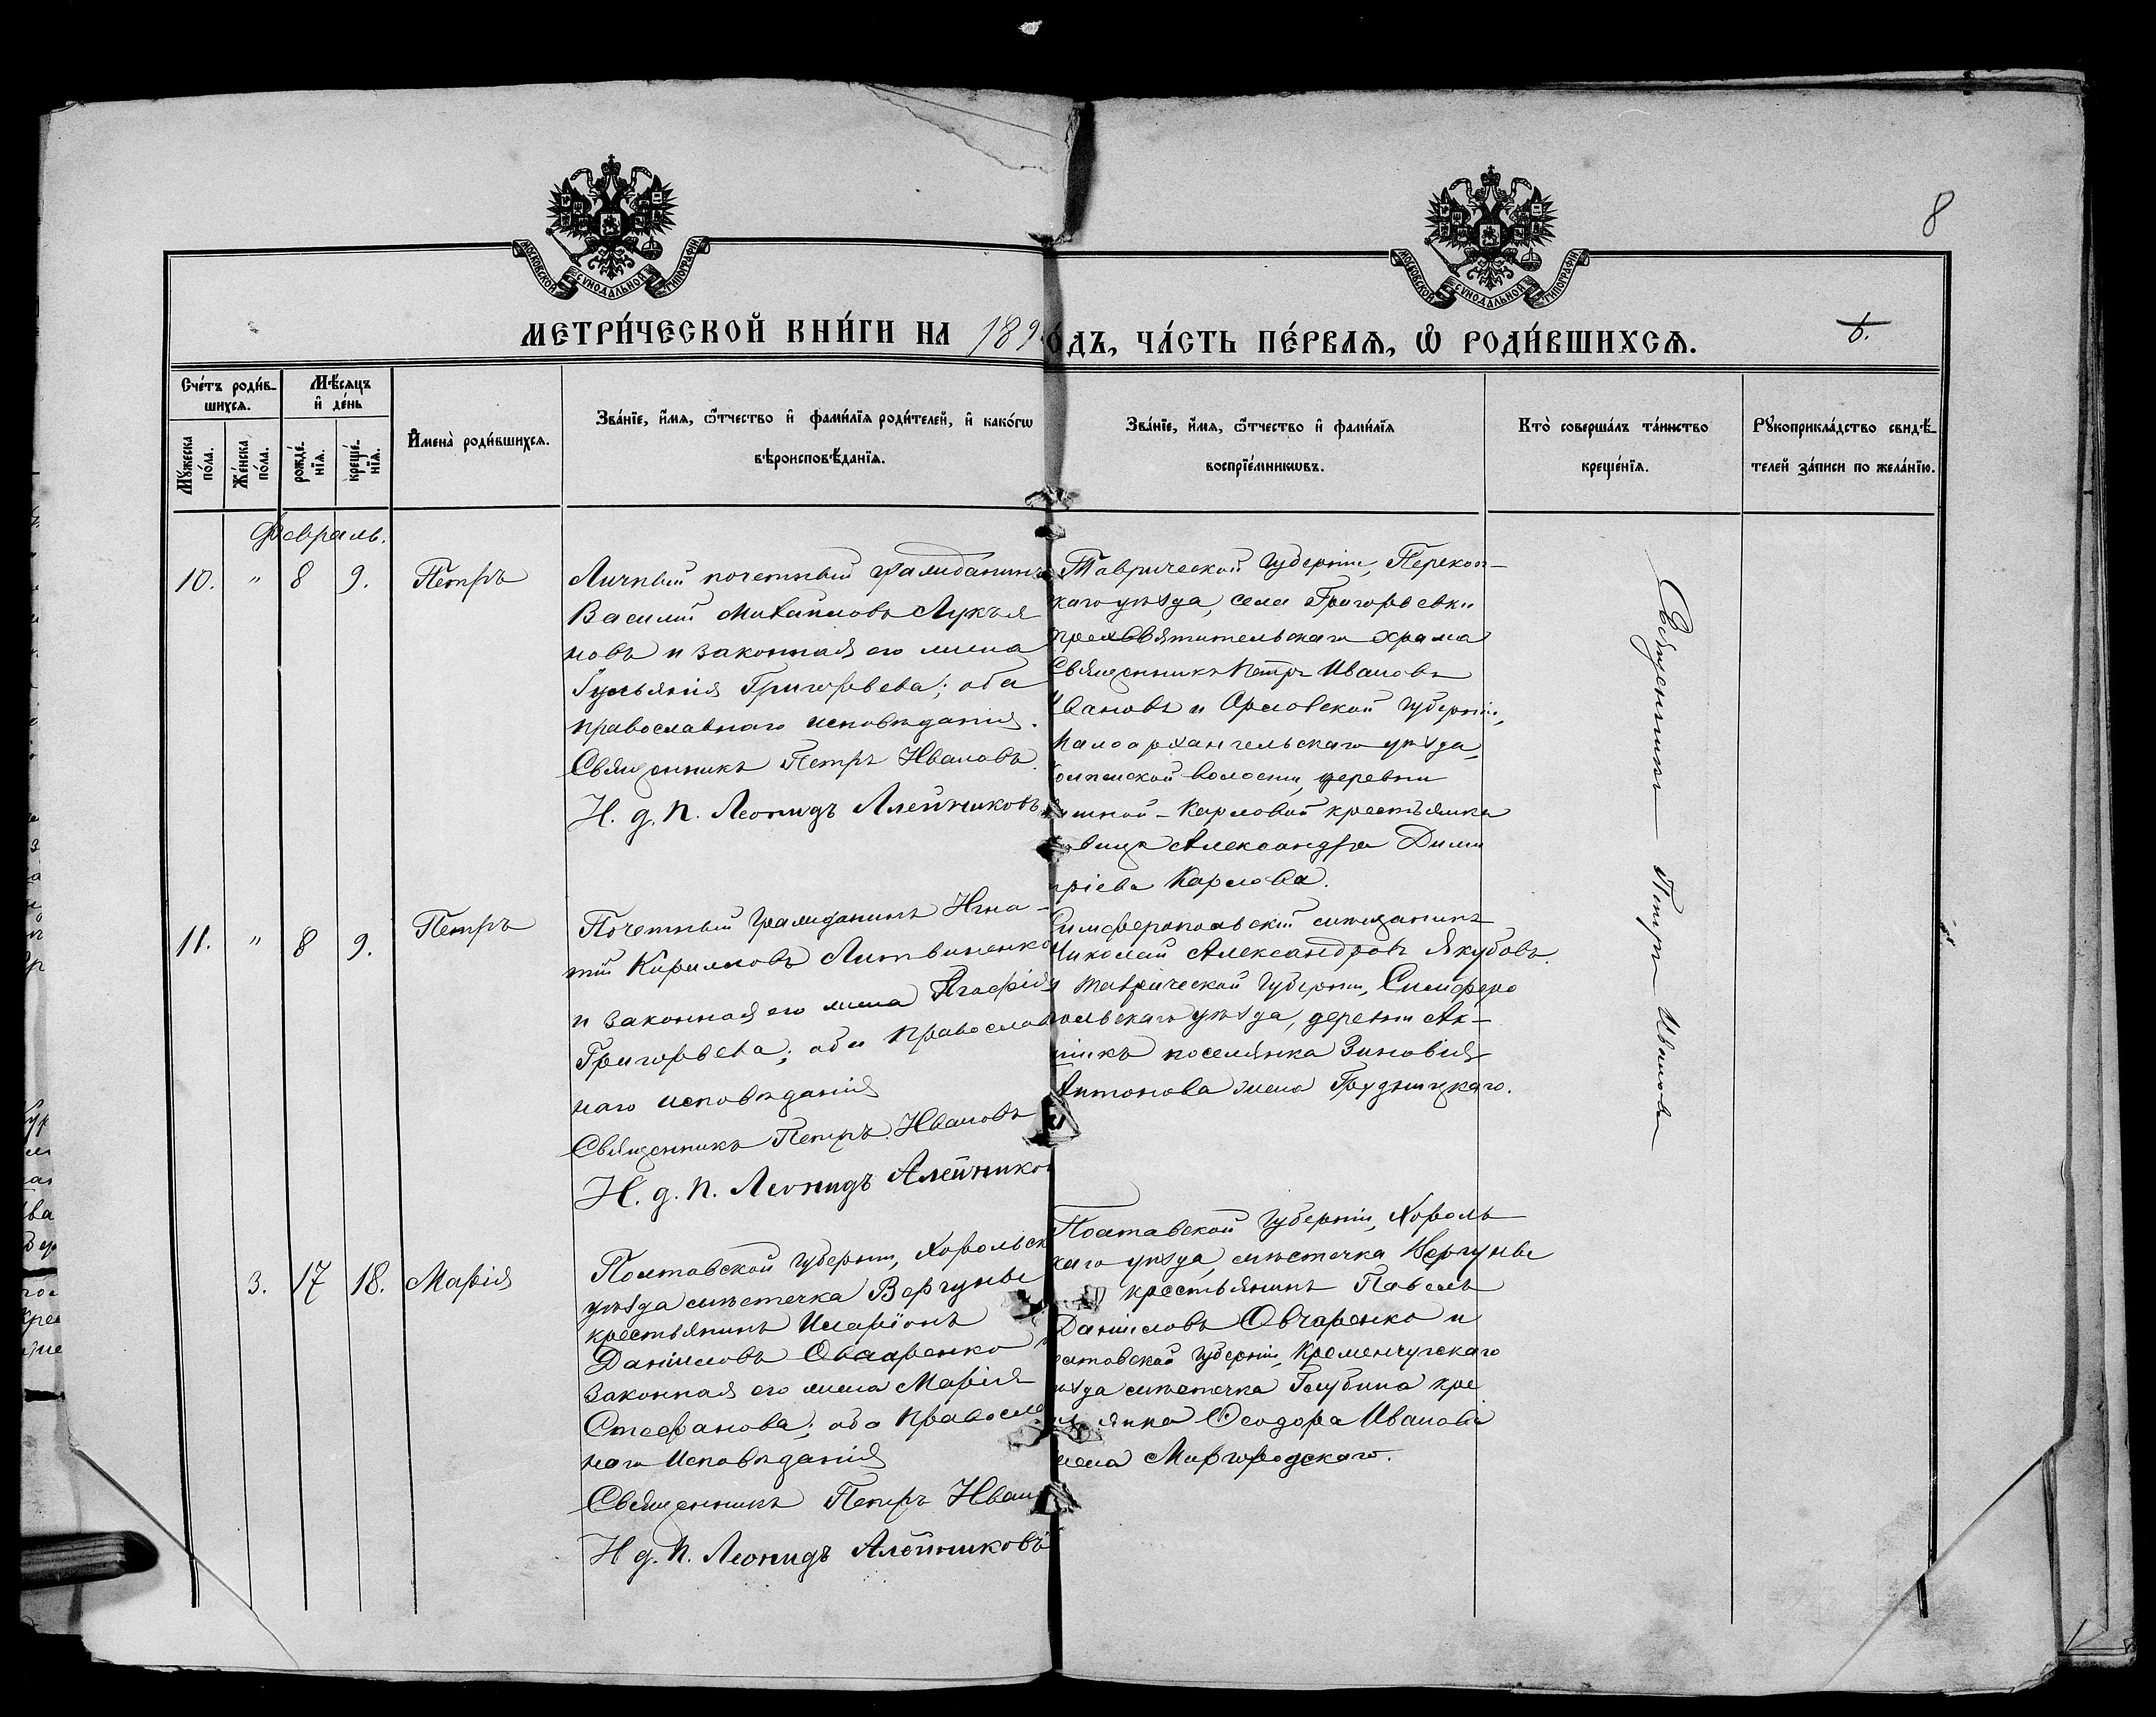 8
МОСКОВСКОЙ СѴНОДАЛЬНОЙ ТИПОГРАФІИ
МОСКОВСКОЙ СѴНОДАЛЬНОЙ ТИПОГРАФІИ
МЕТРИ́ЧЕСКОЙ КНИ́ГИ НА 189
ОДЪ, ЧА́СТЬ ПЕ́РВАѦ, Ѡ РОДИ́ВШИХСѦ.
6.
Сче́тъ роди́в-
шихсѧ.
Мѣ́сѧцъ
и҆ де́нь
Мꙋ́жеска
по́ла.
Же́нска
по́ла.
рожде́-
нїѧ.
креще́-
нїѧ.
И҆мена̀ роди́вшихсѧ.
Зва́нїе, и҆́мѧ, ѻ҆́тчество и҆ фами́лїѧ роди́телей, и҆ како́гѡ
вѣроисповѣ́данїѧ.
Зва́нїе, и҆́мѧ, ѻ҆́тчество и҆ фами́лїѧ
воспрїе́мникѡвъ.
Кто̀ соверша́лъ та́инство
креще́нїѧ.
Рꙋкоприкла́дство свидѣ́-
телей за́писи по жела́нїю.
Февраль.
10. " 8 9. Петръ
Личный почетный гражданинъ
Василий Михаиловъ Лукъя
новъ и законная его жена
Григорьева; оба
православнаго исповѣданія.
Священникъ Петръ Ивановъ.
И. д. п. Леонидъ Алейниковъ
Таврической Губерніи, Перекоп-
каго уѣзда, села Григорьевки
трехСвятительскаго храма
Священникъ Петръ Ивановъ
Ивановъ и Орловской Губерніи,
Малоархангельскаго уѣзда,
волости, деревни
Карловой крестьянка
вица Александра Дими
тріева Карлова.
11. " 8 9. Петръ
Почетный Гражданинъ Игна-
тій Кириловъ Литвиненко
и законная его жена Агафія
Григорьева; оба православ
наго исповѣданія
Священникъ Петръ Ивановъ
И. д. п. Леонидъ Алейников
Симферопольскій мѣщанинъ
Николай Александровъ Якубовъ
и Таврической Губерніи, Симферо
польскаго уѣзда, деревни Ак-
поселянка Зиновія
Антонова жена Грудницкаго.
3. 17 18. Марія
Полтавской Губерніи, Хорольск
уѣзда мѣстечка Вергуны
крестьянинъ Иларіонъ
Даниловъ Овчаренко и
законная его жена Марія
Стефанова; оба правосла
наго исповѣданія
Священникъ Петръ Иван
И д. п. Леонидъ Алейниковъ
Полтавской Губерніи, Хороль
каго уѣзда, мѣстечка Вергуны
крестьянинъ Павелъ
Даниловъ Овчаренко и
лтавской Губерніи, Кременчугскаго
уѣзда мѣстечка Глубина кре
янка Ѳеодора Иванова
жена Миргородскаго.
Священникъ Петръ Ивановъ